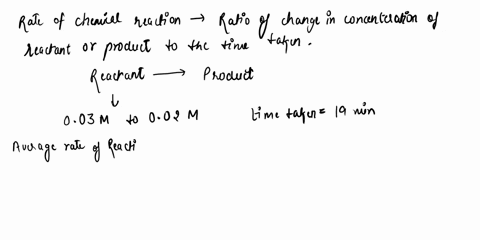 Rate of chemical reaction → Ratio of change in concentration of
reactant or product to the time taken.
Reactant → Product
↓
0.03 M to 0.02 M time taken = 19 min
Average rate of Reacti